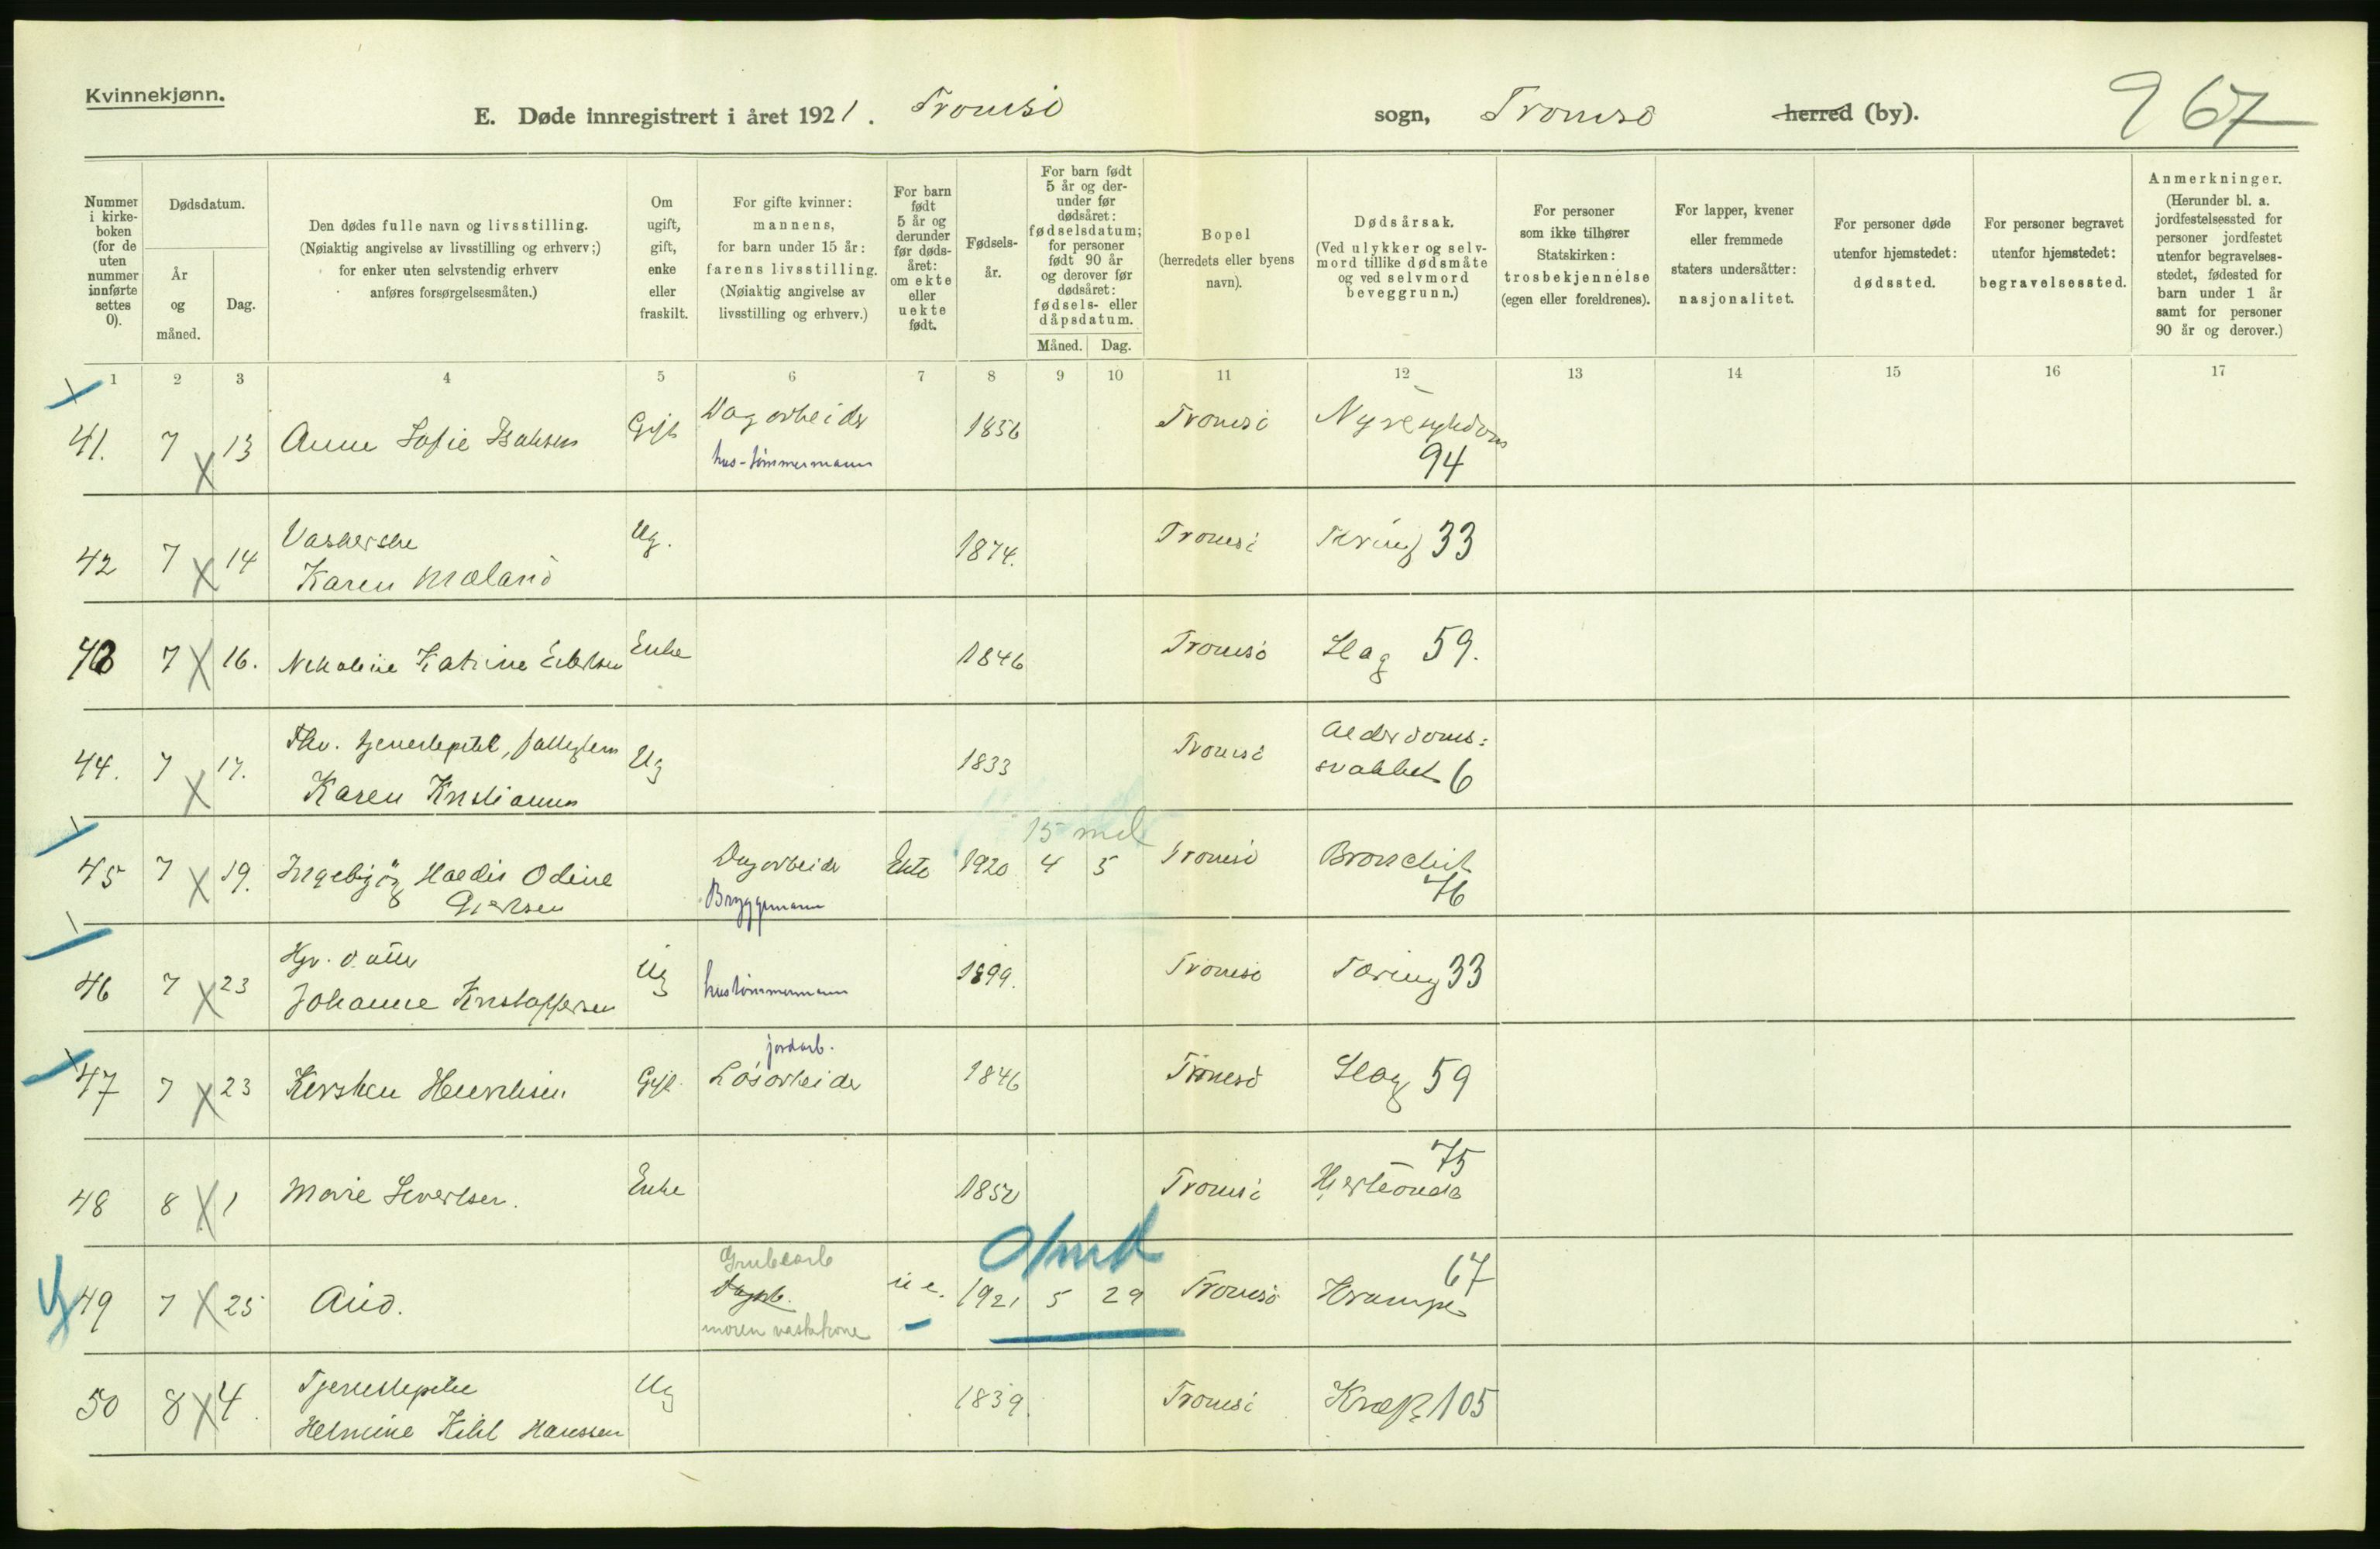 Kvinnekjønn.
E. Døde innregistrert i året 1921. Tromsø sogn, Tromsø herred (by).
967
Nummer i kirkeboken (for de uten nummer innførte settes 0).
Dødsdatum.
År og måned.
Dag.
Den dødes fulle navn og livsstilling.
(Nøiaktig angivelse av livsstilling og erhverv;)
for enker uten selvstendig erhverv
anføres forsørgelsesmåten.)
Om
ugift,
gift,
enke
eller
fraskilt.
For gifte kvinner:
mannens,
for barn under 15 år:
farens livsstilling.
(Nøiaktig angivelse av
livsstilling og erhverv.)
For barn
født
5 år og
derunder
før døds-
året:
om ekte
eller
uekte
født.
Fødsels-
år.
For barn født
5 år og der-
under før
dødsåret:
fødselsdatum;
for personer
født 90 år
og derover før
dødsåret:
fødsels- eller
dåpsdatum.
Måned. Dag.
Bopel
(herredets eller byens
navn).
Dødsårsak.
(Ved ulykker og selv-
mord tillike dødsmåte
og ved selvmord
beveggrunn.)
For personer
som ikke tilhører
Statskirken:
trosbekjennelse
(egen eller foreldrenes).
For lapper, kvener
eller fremmede
staters undersåtter:
nasjonalitet.
For personer døde
utenfor hjemstedet:
dødssted.
For personer begravet
utenfor hjemstedet:
begravelsessted.
Anmerkninger.
(Herunder bl. a.
jordfestelsessted for
personer jordfestet
utenfor begravelses-
stedet, fødested for
barn under 1 år
samt for personer
90 år og derover.)
1 2 3 4 5 6 7 8 9 10 11 12 13 14 15 16 17
41. 7 13 Anne Sofie Isaksen Gift Dagarbeider 1856 Tromsø Nyresykdom
hus-tømmermann 94
Vaskerske
42 7 14 Karen Mæland Ug. 1874. Tromsø Tæring 33
43 7 16. Nikoline Katrine Enke 1846 Tromsø Slag 59.
Fhv. tjenestepike,
44. 7 17. Karen Ug 1833 Tromsø Alderdoms-
svakhet 6
15 md
45 7 19. Ingebjørg Haldis Odine Dagarbeider Ekte 1920 4 5 Tromsø Bronchit
Bryggemann 76
Hgv. datter
46 7 23 Johanne Kristoffersen Ug hustømmermann 1899. Tromsø Tæring 33
jordarb.
47 7 23 Kirsten Henriksen Gift. Løsarbeider 1846 Tromsø Slag 59
75
48 8 1 Marie Sivertsen. Enke 1852 Tromsø Hjerteonde
Grubearb 0/md 67
49 7 25 Aud. Dagarb. u e. 1921 5 29 Tromsø Krampe
moren vaskekone
Tjenestepike
50 8 4. Helmine Kihl Hanssen Ug 1839. Tromsø Kræft 105